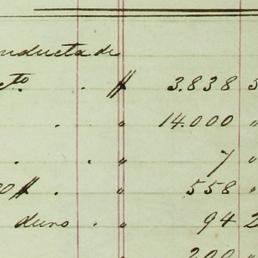 onducta de
cto . $ 3.838 3
. " 14.000 "
. . " 7 "
0 $ . " 558 "
duro . " 94 2
" 200 "